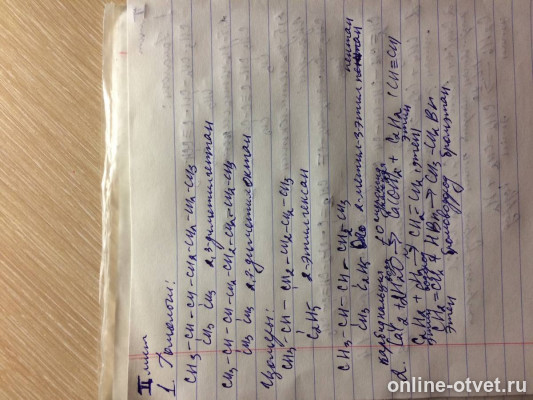 II лист
1. Гомологи:
CH3-CH-CH-CH2-CH2-CH2-CH3
CH3 CH3 2,3-диметилгептан
CH3-CH-CH-CH2-CH2-CH2-CH2-CH3
CH3 CH3 2,3-диметилоктан
Изомеры:
CH3-CH-CH2-CH2-CH2-CH3
C2H5 2-этилгексан
CH3-CH-CH-CH2-CH3
CH3 C2H5 2-метил-3-этилпентан
2. CaC2 + 2H2O → Ca(OH)2 + C2H2 (CH≡CH)
C2H2 + H2 → CH2=CH2 (этен)
CH2=CH2 + HBr → CH3-CH2Br
этен бромоводород бромэтан
online-otvet.ru